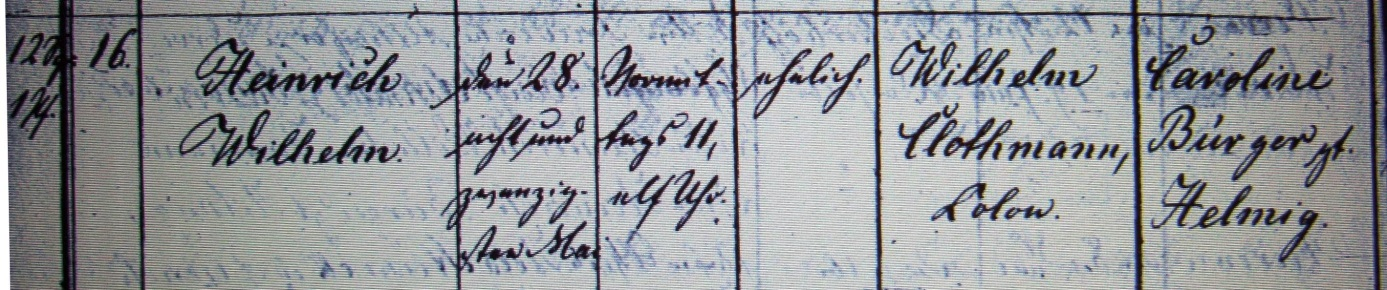 16.
Heinrich
Wilhelm.
den 28.
acht und
zwanzig-
sten Mai
Vormit-
tags 11,
elf Uhr.
ehelich.
Wilhelm
Clothmann,
Colon.
Caroline
Bürger gt.
Helmig.